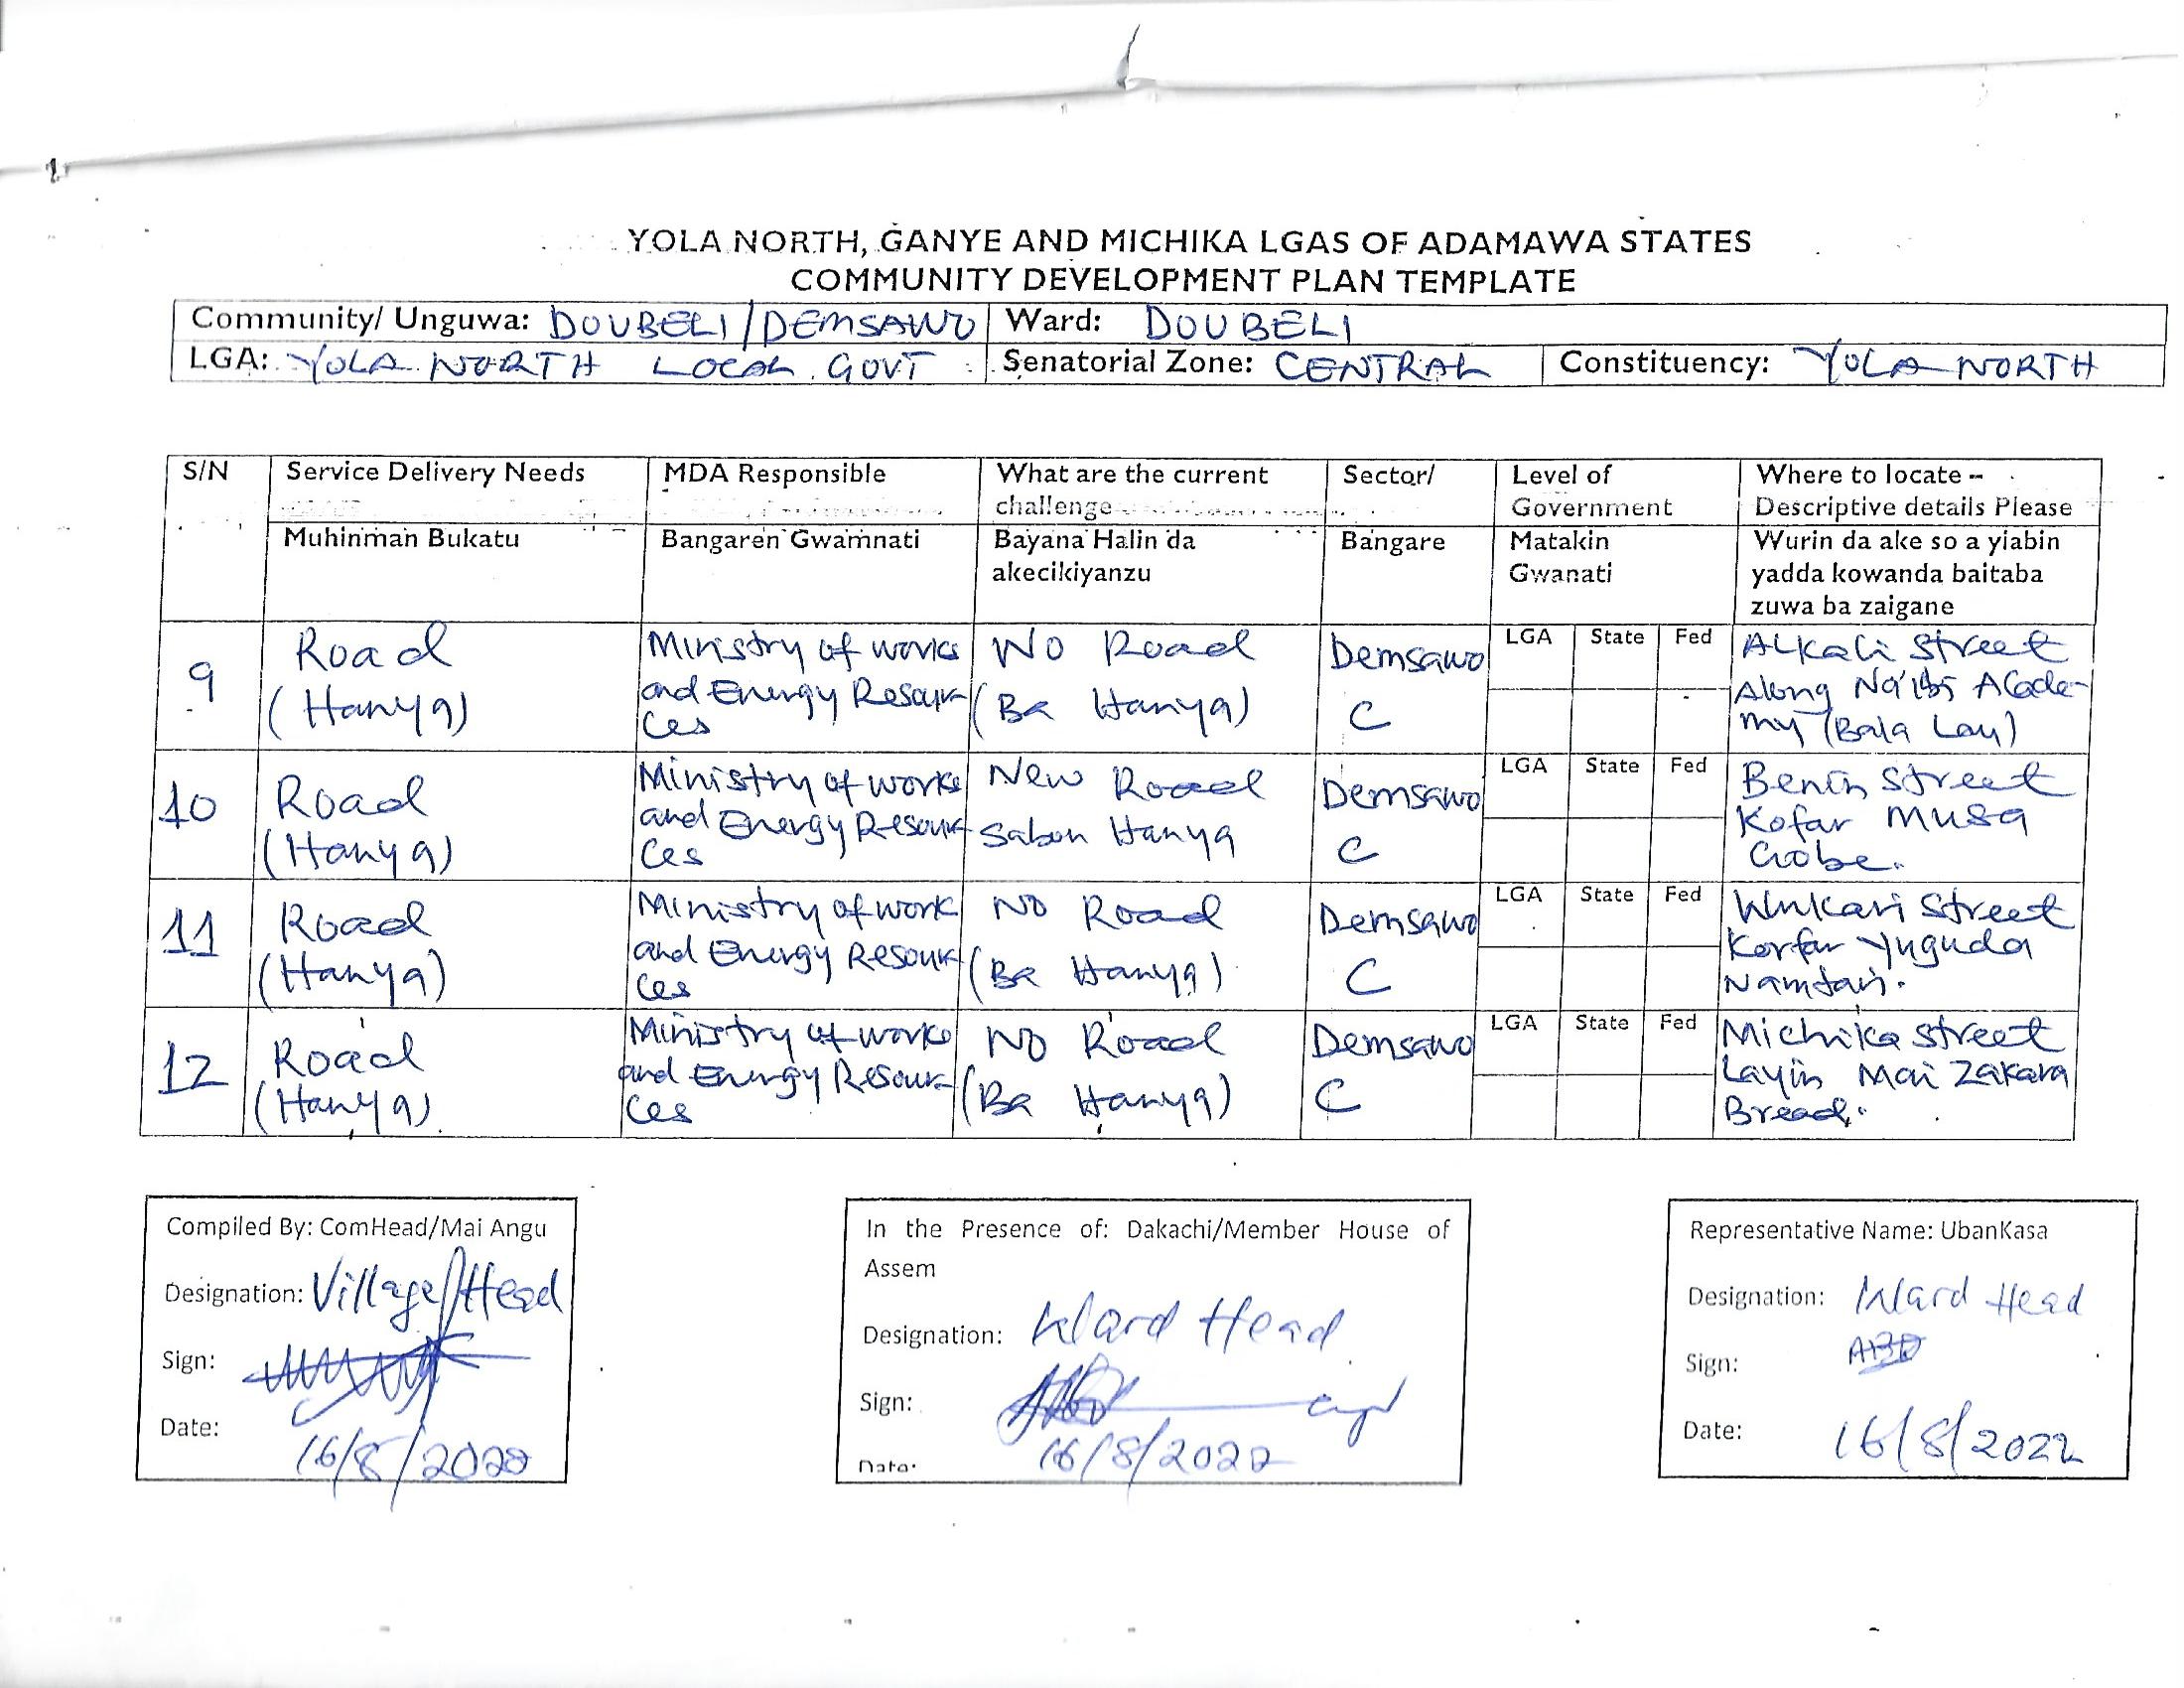 YOLA NORTH, GANYE AND MICHIKA LGAS OF ADAMAWA STATES
COMMUNITY DEVELOPMENT PLAN TEMPLATE
Community/ Unguwa: DOUBELI/DEMSAWO Ward: DOUBELI
LGA: YOLA NORTH LOCAL GOVT Senatorial Zone: CENTRAL Constituency: YOLA NORTH
S/N Service Delivery Needs MDA Responsible What are the current challenge Sector/ Level of Government Where to locate – Descriptive details Please
Muhinman Bukatu Bangaren Gwamnati Bayana Halin da akecikiyanzu Bangare Matakin Gwanati Wurin da ake so a yiabin yadda kowanda baitaba zuwa ba zaigane
9 Road (Hanya) Ministry of works and Energy Resources No Road (Ba Hanya) Demsawo C LGA State Fed Alkali Street Along Na'ibi Academy (Bala Lau)
10 Road (Hanya) Ministry of works and Energy Resources New Road Sabon Hanya Demsawo C LGA State Fed Benin Street Kofar Musa Gobe.
11 Road (Hanya) Ministry of work and Energy Resources No Road (Ba Hanya) Demsawo C LGA State Fed Wukari Street Korfar Yuguda Namtari.
12 Road (Hanya) Ministry of works and Energy Resources No Road (Ba Hanya) Demsawo C LGA State Fed Michika Street Layin Mai Zakara Bread.
Compiled By: ComHead/Mai Angu
Designation: Village Head
Sign:
Date: 16/8/2022
In the Presence of: Dakachi/Member House of
Assem
Designation: Ward Head
Sign:
Date: 16/8/2022
Representative Name: UbanKasa
Designation: Ward Head
Sign:
Date: 16/8/2022